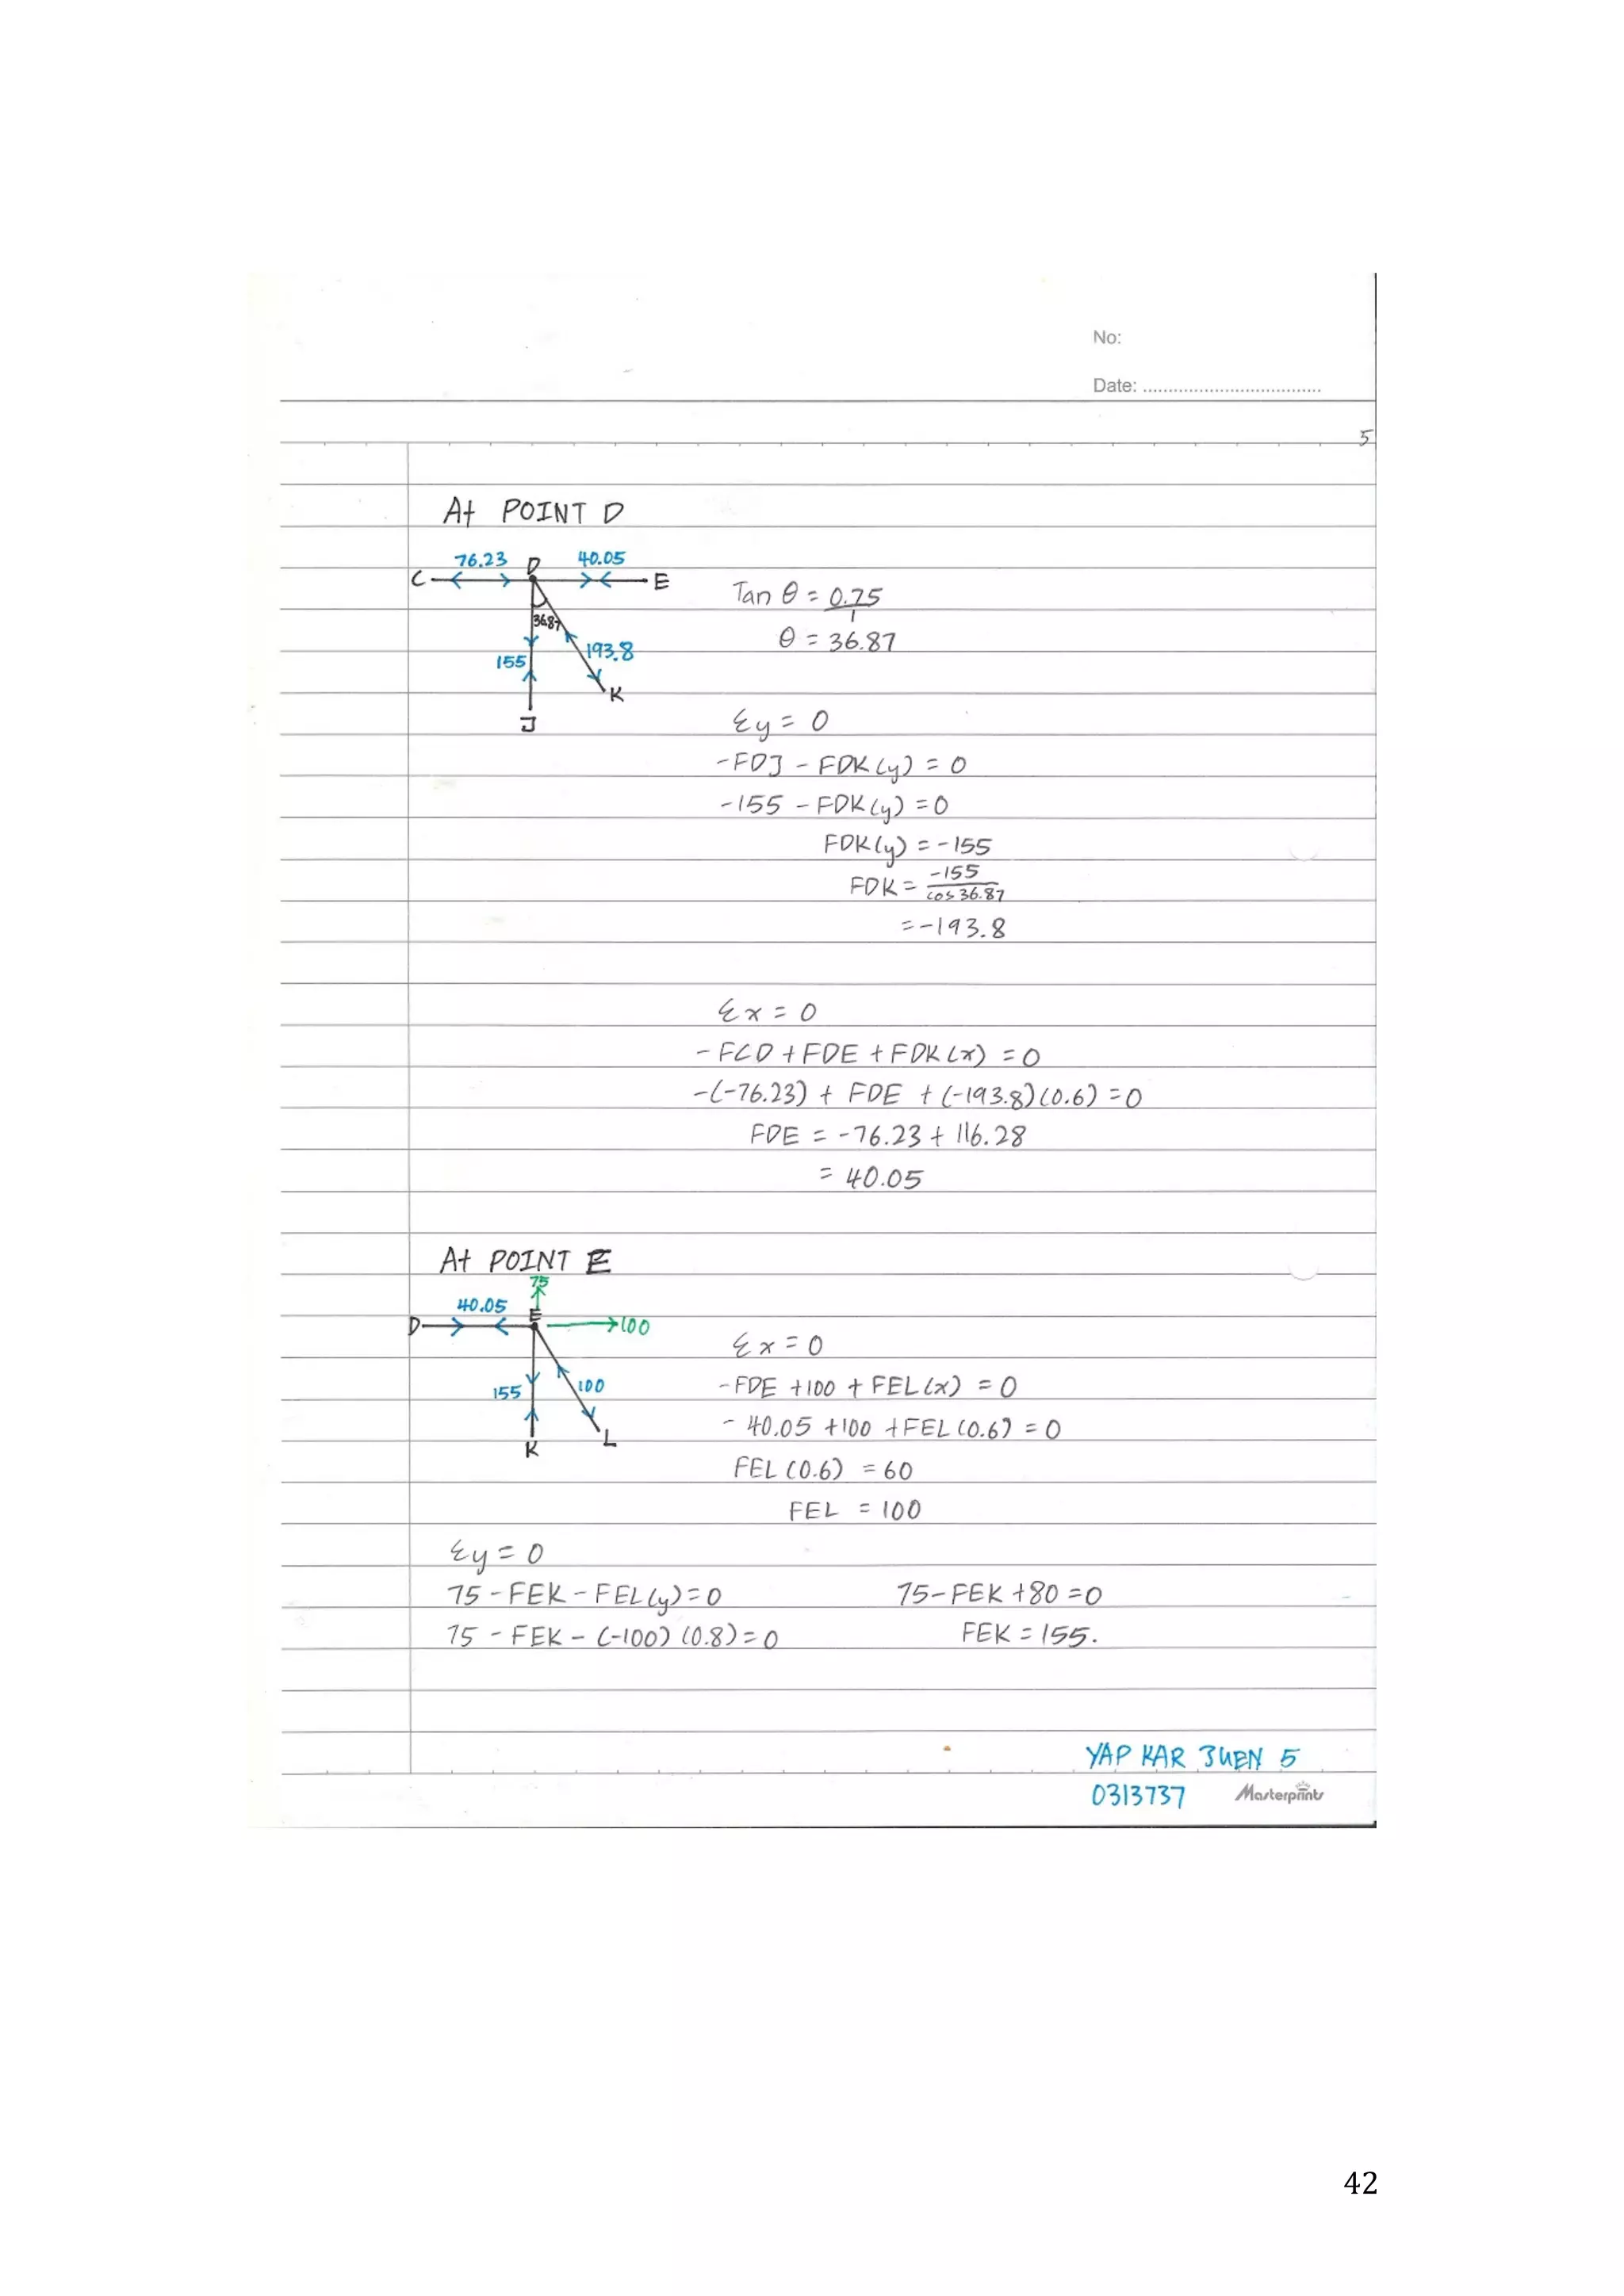 No:
Date: ..................................
5
At POINT D
76.23 D 40.05
C E
36.87
155 193.8
K
J
Tan θ = 0.75
1
θ = 36.87
Σy = 0
-FDJ - FDK(y) = 0
-155 - FDK(y) = 0
FDK(y) = -155
FDK = -155
cos 36.87
= -193.8
Σx = 0
- FCD + FDE + FDK(x) = 0
-(-76.23) + FDE + (-193.8)(0.6) = 0
FDE = -76.23 + 116.28
= 40.05
At POINT E
75
40.05 E
D 100
155 100
K L
Σx = 0
- FDE + 100 + FEL(x) = 0
- 40.05 + 100 + FEL(0.6) = 0
FEL(0.6) = 60
FEL = 100
Σy = 0
75 - FEK - FEL(y) = 0 75 - FEK + 80 = 0
75 - FEK - (-100)(0.8) = 0 FEK = 155.
YAP KAR JUEN 5
0313737 Masterprints
42